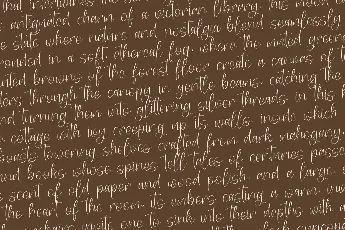 that transports
antiquated charm of a victorian library, this mood
state where colors and nostalgia blend seamlessly
rounded in a soft ethereal fog where the muted greens
muted browns of the forest floor create a canvas of
through the canopy in gentle beams, catching the
and turning them into glittering silver threads. in this
cottage with ivy creeping up its walls. inside which
towering shelves crafted from dark mahogany
and books whose spines tell tales of centuries passed
scent of old paper and wood polish, and a large
the heart of the room its embers casting a warm
invite one to sink into their depths with a